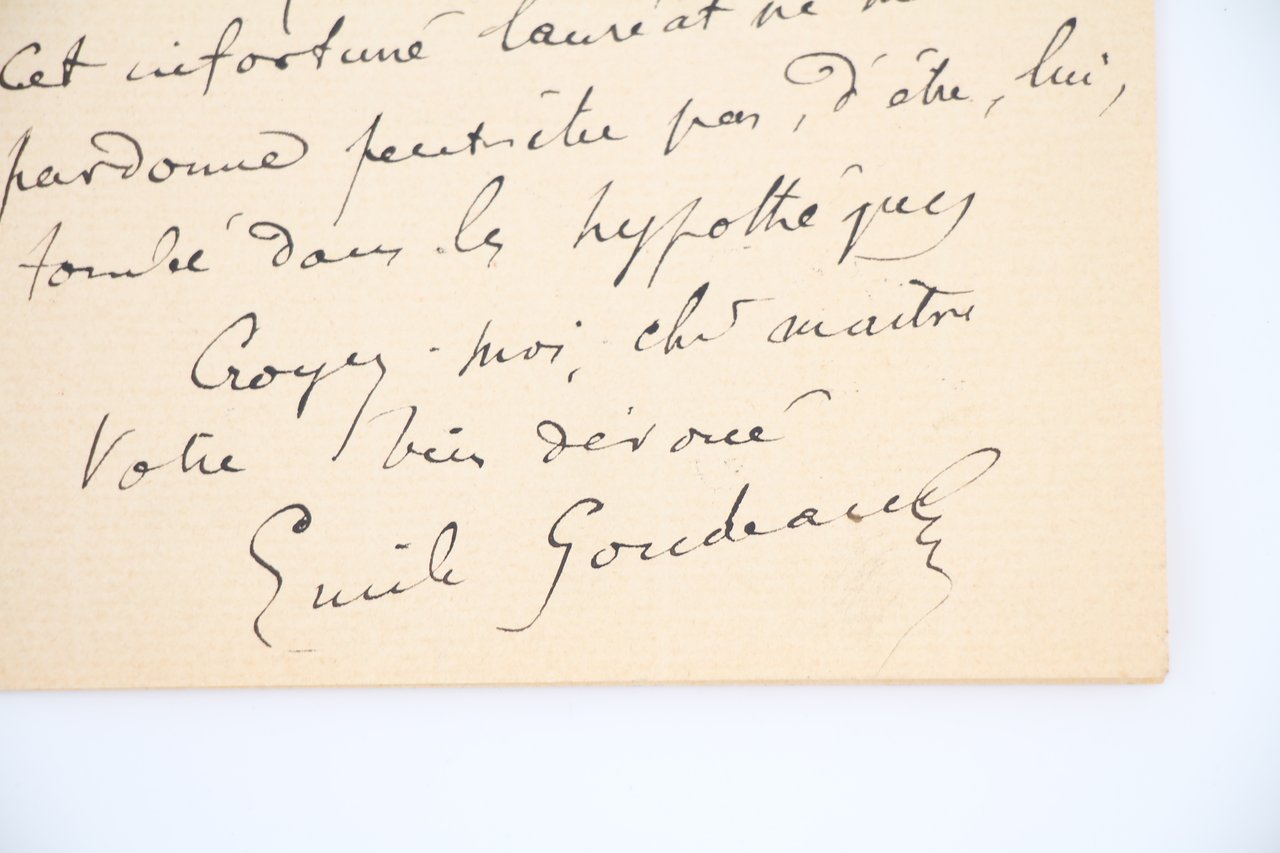 Cet infortuné lauréat ne m
pardonne peut-être pas, d'être, lui,
tombé dans les hypothéques
Croyez-moi, cher maitre
Votre bien dévoué
Emile Goudeau